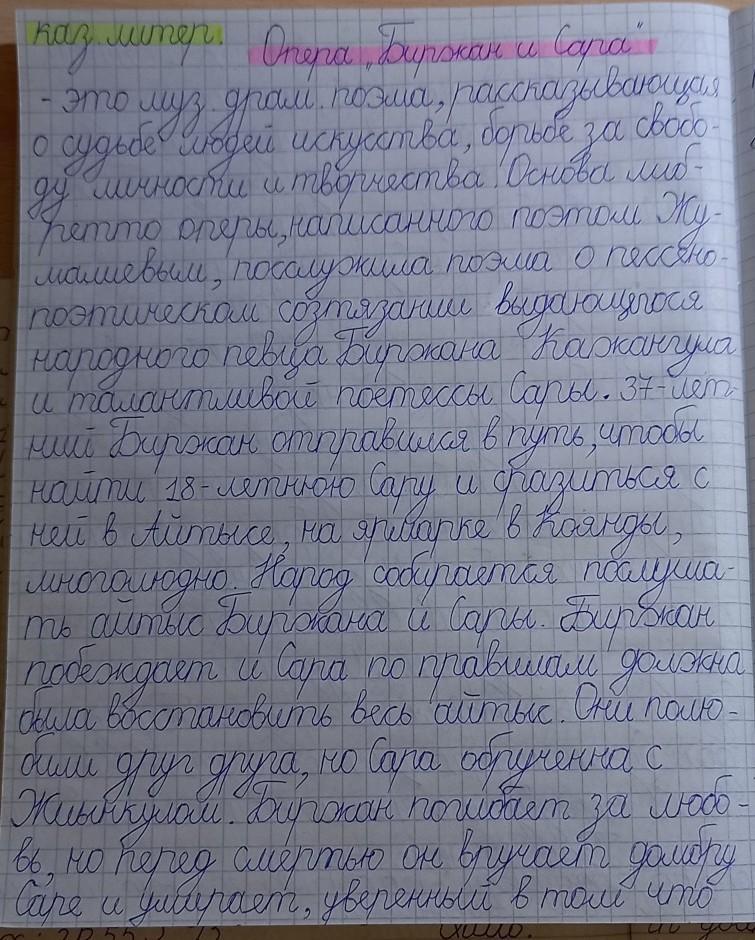 каз. литер. Опера „Биржан и Сара"
- это муз. драм. поэма, рассказывающая
о судьбе людей искусства, борьбе за свобо-
ду личности и творчества. Основа либ-
ретто оперы, написанного поэтом Жу-
машевым, посалужила поэма о пессено-
поэтическом созтязании выдающегося
народного певца Биржана Кажангула
и талантливой поетессы Сары. 37-лет-
ний Биржан отправился в путь, чтобы
найти 18-летнюю Сару и сразиться с
ней в Айтысе, на ярмарке в Коянды,
многолюдно. Народ собирается послуша-
ть айтыс Биржана и Сары. Биржан
побеждает и Сара по правилам должна
была восстановить весь айтыс. Они полю-
били друг друга, но Сара обрученна с
Жиынкулом. Биржан погибает за любо-
вь, но перед смертью он вручает домбру
Саре и умирает, уверенный в том что